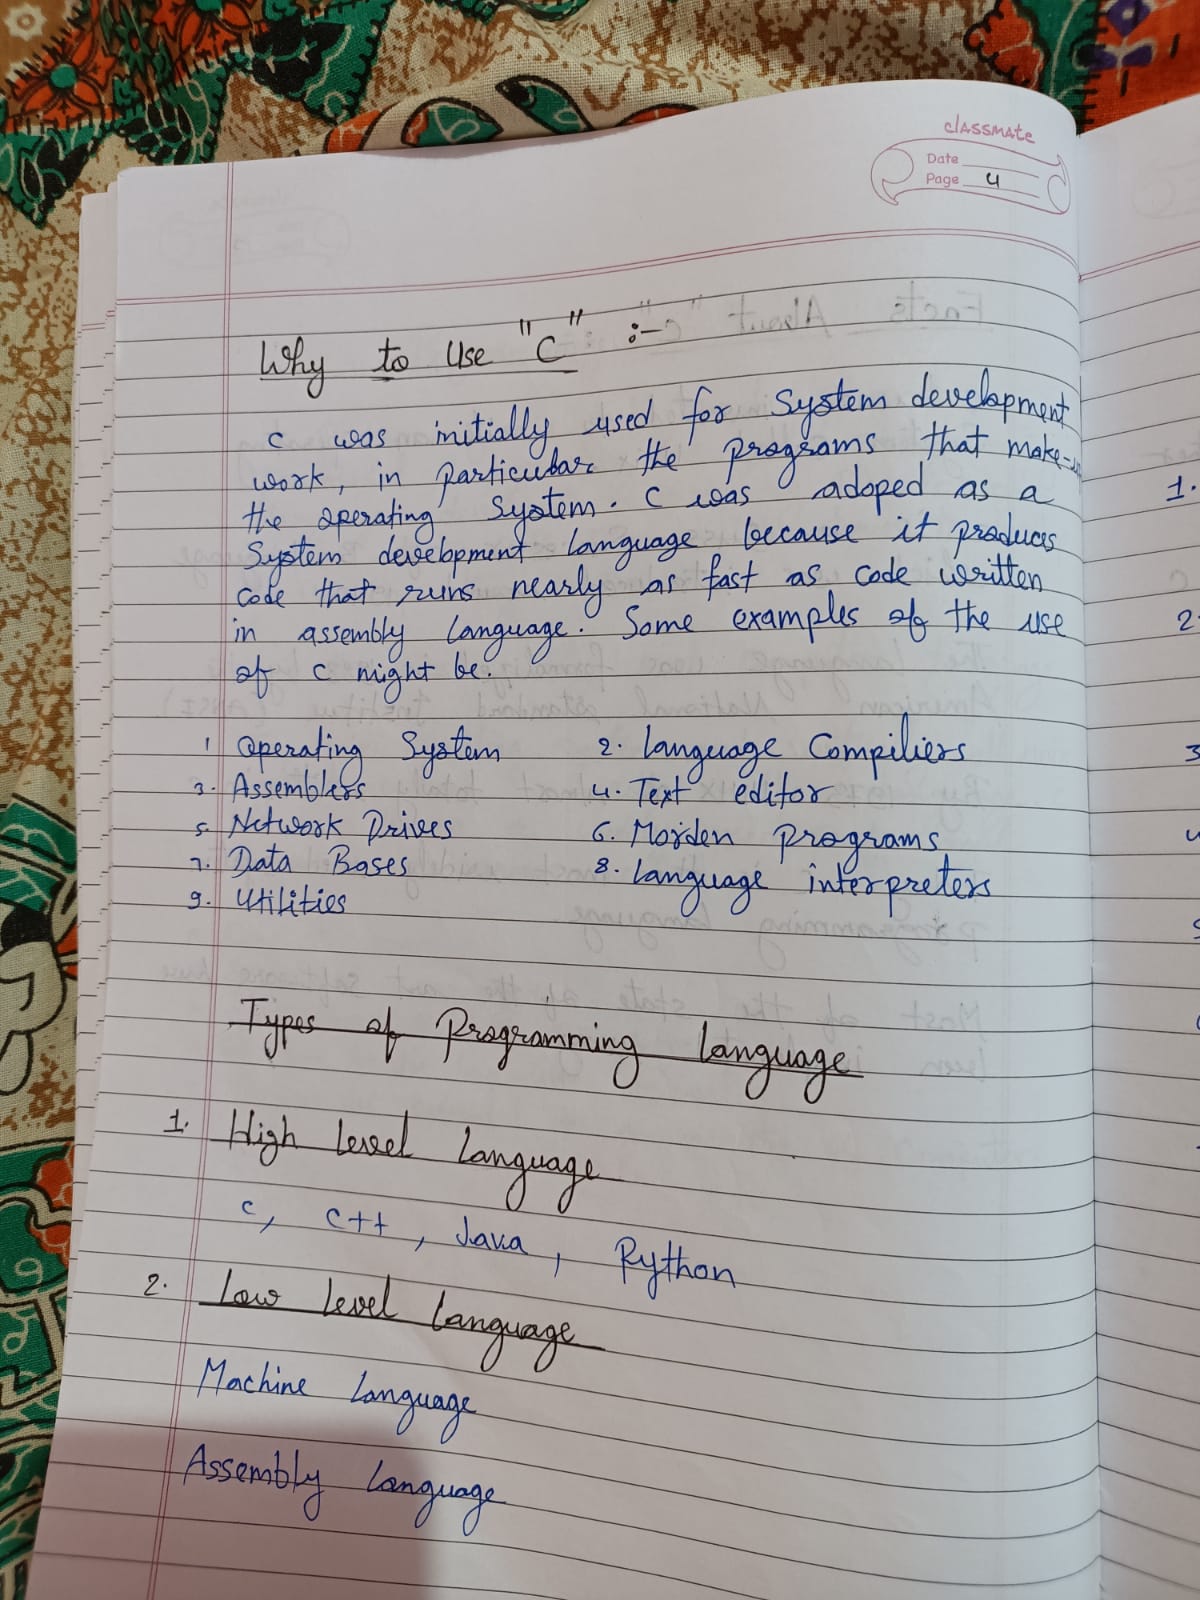 classmate
Date
Page 4
Why to Use "C" :-
C was initially used for System development
work, in particular the programs that make-up
the operating System. C was adoped as a
System development language because it produces
code that runs nearly as fast as code written
in assembly language. Some examples of the use
of C might be:
1 Operating System 2. Language Compiliers
3. Assemblers 4. Text editor
5. Network Drives 6. Morden programs
7. Data Bases 8. Language interpreters
9. Utilities
Types of Programming Language
1. High Level Language
C, C++, Java, Python
2. Low Level Language
Machine Language
Assembly Language
1.
2.
3